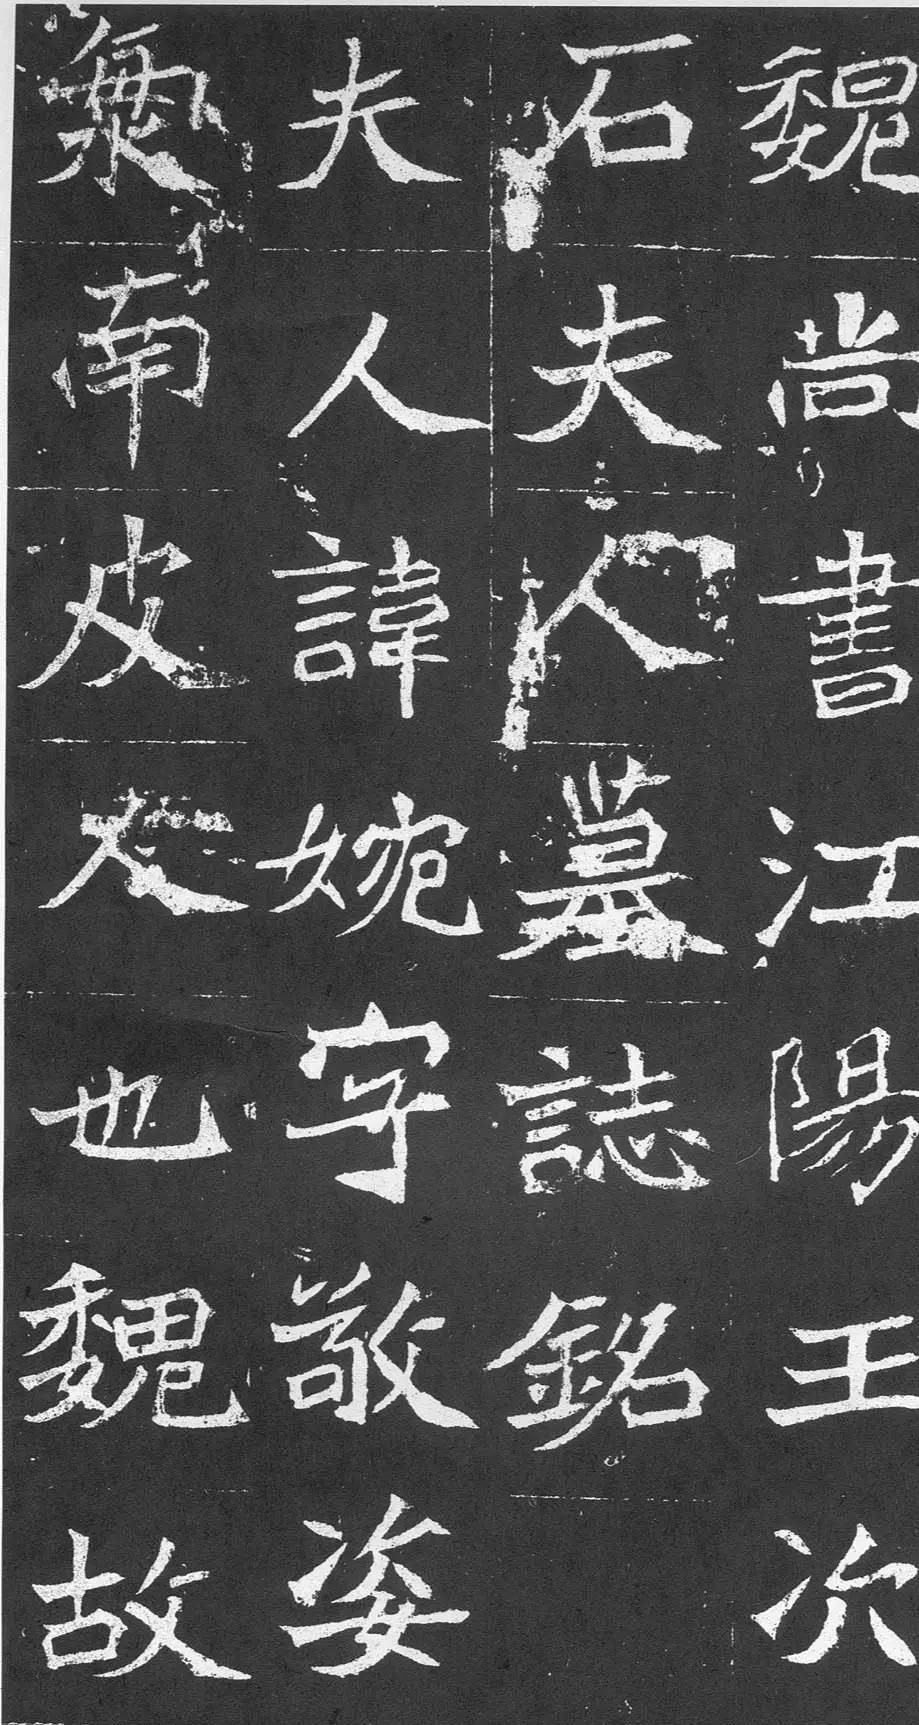 魏尚書江陽王次
石夫人墓誌銘
夫人諱婉字敬姿
勃海南皮人也魏故